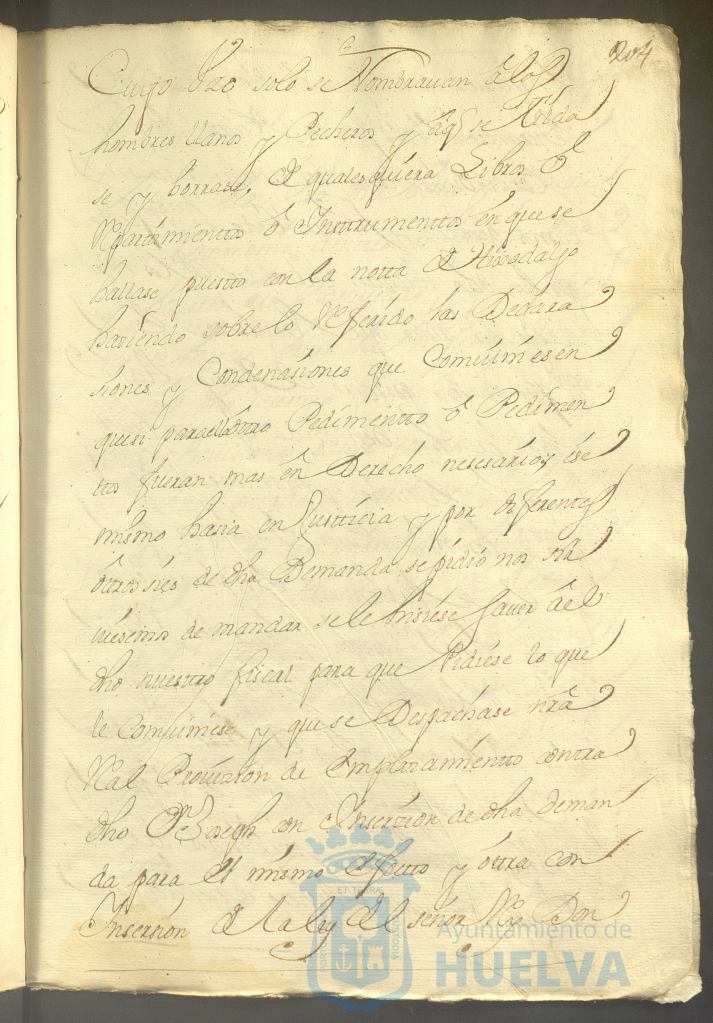 204
Cuyo Uzo solo se Nombravan â los
hombres llanos y Pecheros y âq.e se Tilda
se y borrase, de qualesquiera Libros ô
Repartimientto ô Insttrumenttos en que se
hallase puestto con la notta de Hixodalgo
haviendo sobre lo Referido las Declara
siones y Condenasiones que Comviniesen
que si para ello ôtro Pedimentto ô Pedimen
tto fueran mas en Derecho nesesario y ese
mismo hasia en Justticia y por diferentes
ôtrosies de dha Demanda se pidio nos sir
viesemos de mandar se le hisiese saver âel
dho nuestro fiscal para que Pidiese lo que
le Comviniese, y que se Despachase nrâ
Real Provizion de Emplazamientto contra
dho Dn Joseph con Insercion de dha deman
da para el mismo efectto y ôttra con
Insersion de la ley del señor Rey Don
Ayuntamiento de
HUELVA